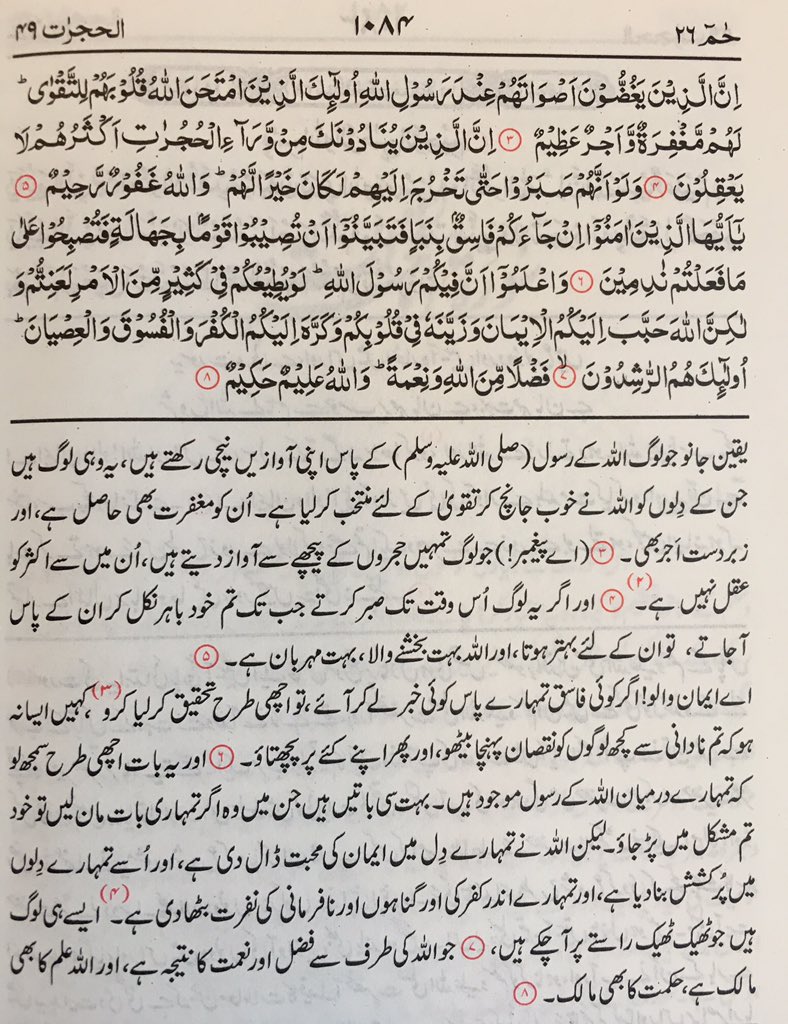 حٰمٓ ٢٦ ١٠٨٤ الحجرٰت ٤٩
اِنَّ الَّذِيْنَ يَغُضُّوْنَ اَصْوَاتَهُمْ عِنْدَ رَسُوْلِ اللّٰهِ اُولٰٓئِكَ الَّذِيْنَ امْتَحَنَ اللّٰهُ قُلُوْبَهُمْ لِلتَّقْوٰى ؕ
لَهُمْ مَّغْفِرَةٌ وَّاَجْرٌ عَظِيْمٌ ۝٣ اِنَّ الَّذِيْنَ يُنَادُوْنَكَ مِنْ وَّرَآءِ الْحُجُرٰتِ اَكْثَرُهُمْ لَا
يَعْقِلُوْنَ ۝٤ وَلَوْ اَنَّهُمْ صَبَرُوْا حَتّٰى تَخْرُجَ اِلَيْهِمْ لَكَانَ خَيْرًا لَّهُمْ ؕ وَاللّٰهُ غَفُوْرٌ رَّحِيْمٌ ۝٥
يٰۤاَيُّهَا الَّذِيْنَ اٰمَنُوْۤا اِنْ جَآءَكُمْ فَاسِقٌۢ بِنَبَاٍ فَتَبَيَّنُوْۤا اَنْ تُصِيْبُوْا قَوْمًۢا بِجَهَالَةٍ فَتُصْبِحُوْا عَلٰى
مَا فَعَلْتُمْ نٰدِمِيْنَ ۝٦ وَاعْلَمُوْۤا اَنَّ فِيْكُمْ رَسُوْلَ اللّٰهِ ؕ لَوْ يُطِيْعُكُمْ فِيْ كَثِيْرٍ مِّنَ الْاَمْرِ لَعَنِتُّمْ وَ
لٰكِنَّ اللّٰهَ حَبَّبَ اِلَيْكُمُ الْاِيْمَانَ وَزَيَّنَهٗ فِيْ قُلُوْبِكُمْ وَكَرَّهَ اِلَيْكُمُ الْكُفْرَ وَالْفُسُوْقَ وَالْعِصْيَانَ ؕ
اُولٰٓئِكَ هُمُ الرّٰشِدُوْنَ ۙ۝٧ فَضْلًا مِّنَ اللّٰهِ وَنِعْمَةً ؕ وَاللّٰهُ عَلِيْمٌ حَكِيْمٌ ۝٨
یقین جانو جو لوگ اللہ کے رسول (صلی اللہ علیہ وسلم) کے پاس اپنی آوازیں نیچی رکھتے ہیں، یہ وہی لوگ ہیں
جن کے دِلوں کو اللہ نے خوب جانچ کر تقویٰ کے لئے منتخب کر لیا ہے۔ اُن کو مغفرت بھی حاصل ہے، اور
زبردست اَجر بھی۔ ﴿۳﴾ (اے پیغمبر!) جو لوگ تمہیں حجروں کے پیچھے سے آواز دیتے ہیں، اُن میں سے اکثر کو
عقل نہیں ہے۔(۲) ﴿۴﴾ اور اگر یہ لوگ اُس وقت تک صبر کرتے جب تک تم خود باہر نکل کر ان کے پاس
آجاتے، تو ان کے لئے بہتر ہوتا، اور اللہ بہت بخشنے والا، بہت مہربان ہے۔ ﴿۵﴾
اے ایمان والو! اگر کوئی فاسق تمہارے پاس کوئی خبر لے کر آئے، تو اچھی طرح تحقیق کر لیا کرو(۳)، کہیں ایسا نہ
ہو کہ تم نادانی سے کچھ لوگوں کو نقصان پہنچا بیٹھو، اور پھر اپنے کئے پر پچھتاؤ۔ ﴿۶﴾ اور یہ بات اچھی طرح سمجھ لو
کہ تمہارے درمیان اللہ کے رسول موجود ہیں۔ بہت سی باتیں ہیں جن میں وہ اگر تمہاری بات مان لیں تو خود
تم مشکل میں پڑ جاؤ۔ لیکن اللہ نے تمہارے دِل میں ایمان کی محبت ڈال دی ہے، اور اُسے تمہارے دِلوں
میں پُرکشش بنا دیا ہے، اور تمہارے اندر کفر کی اور گناہوں اور نافرمانی کی نفرت بٹھا دی ہے۔(۴) ایسے ہی لوگ
ہیں جو ٹھیک ٹھیک راستے پر آچکے ہیں، ﴿۷﴾ جو اللہ کی طرف سے فضل اور نعمت کا نتیجہ ہے، اور اللہ علم کا بھی
مالک ہے، حکمت کا بھی مالک۔ ﴿۸﴾